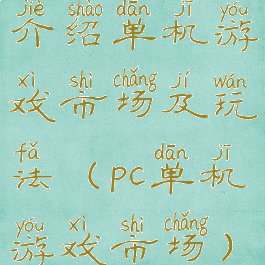 jiè shào dān jī yóu
介绍单机游
xì shì chǎng jí wán
戏市场及玩
fǎ dān jī
法（pc单机
yóu xì shì chǎng
游戏市场）